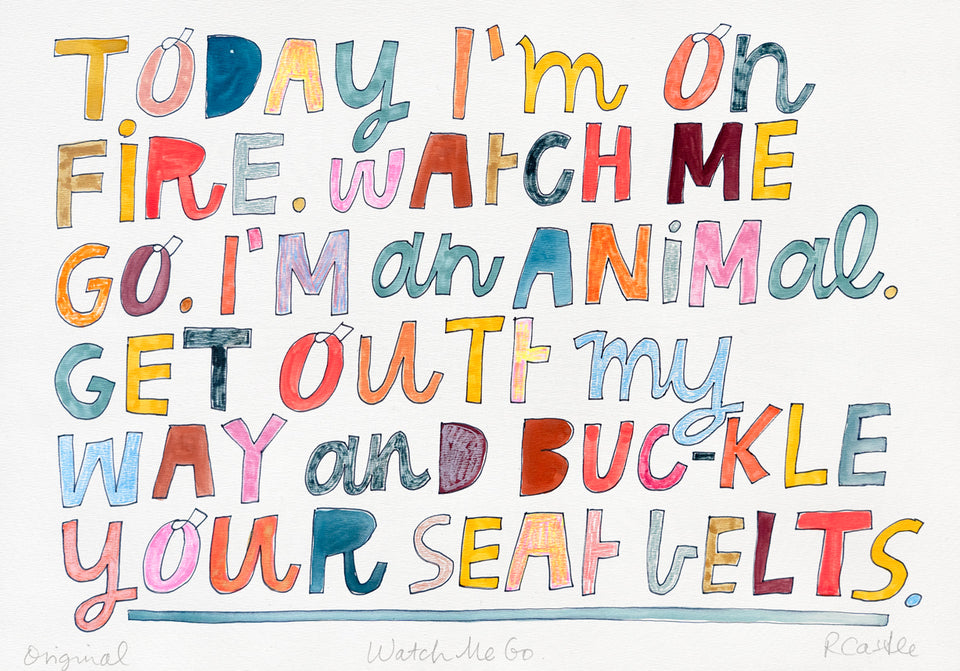 TODAY I'm On
FiRE. WAtCH ME
GO. I'M an ANiMal.
GET OUTt my
WAY anD BUC-KLE
yOUR SEAt bELTS.
Original
Watch Me Go.
RCastle